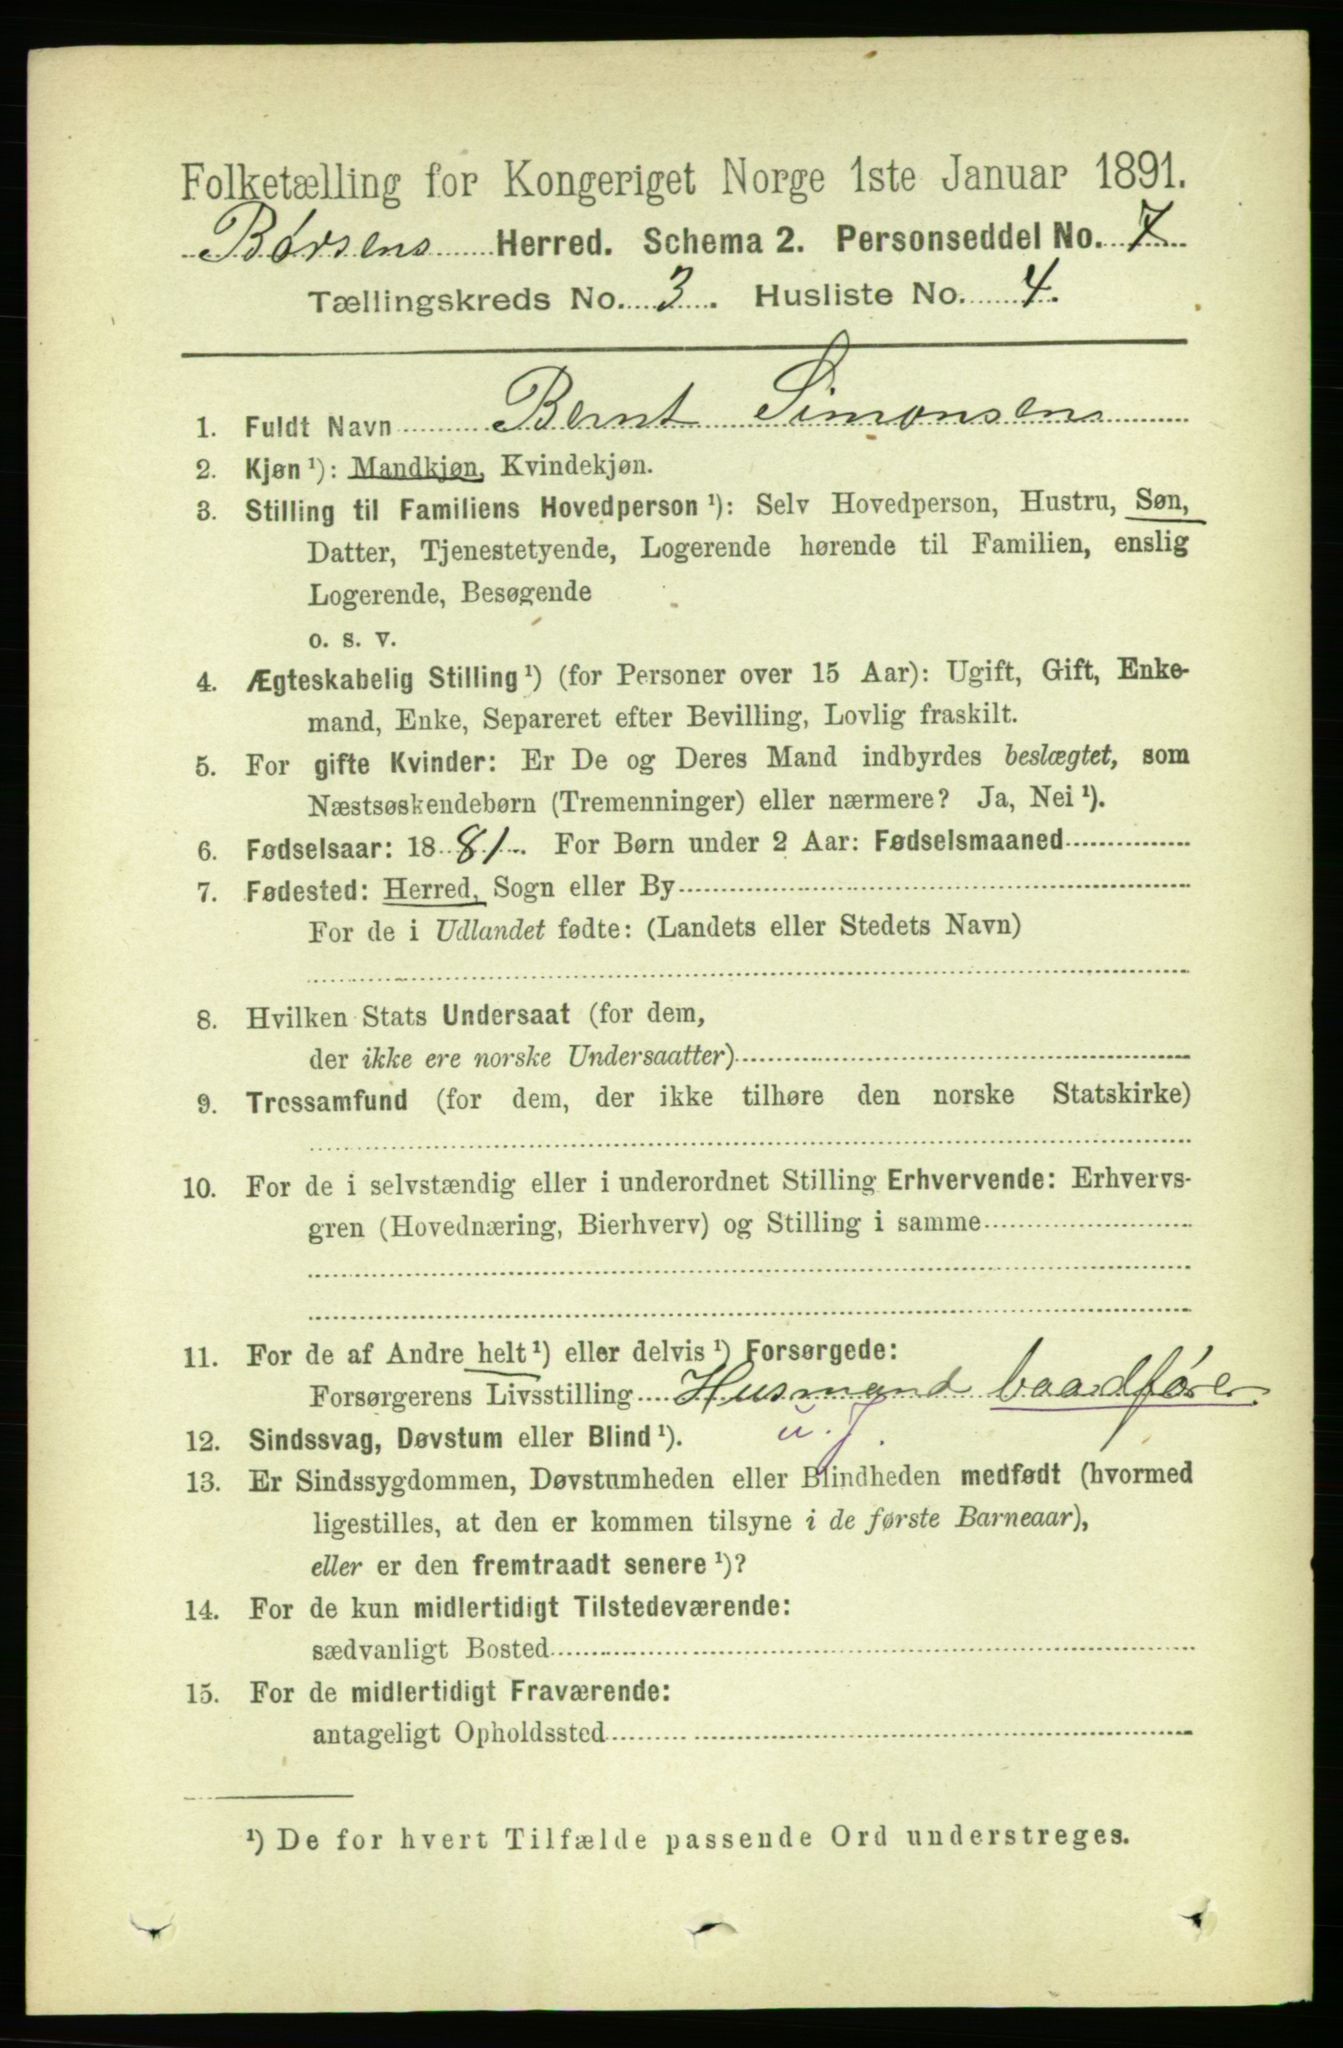 Folketælling for Kongeriget Norge 1ste Januar 1891.
Børsens Herred. Schema 2. Personseddel No. 7
Tællingskreds No. 3. Husliste No. 4.
1. Fuldt Navn Bernt Simonsen
2. Kjøn ¹): Mandkjøn, Kvindekjøn.
3. Stilling til Familiens Hovedperson ¹): Selv Hovedperson, Hustru, Søn,
Datter, Tjenestetyende, Logerende hørende til Familien, enslig
Logerende, Besøgende
o. s. v.
4. Ægteskabelig Stilling ¹) (for Personer over 15 Aar): Ugift, Gift, Enke-
mand, Enke, Separeret efter Bevilling, Lovlig fraskilt.
5. For gifte Kvinder: Er De og Deres Mand indbyrdes beslægtet, som
Næstsøskendebørn (Tremenninger) eller nærmere? Ja, Nei ¹).
6. Fødselsaar: 1881. For Børn under 2 Aar: Fødselsmaaned
7. Fødested: Herred, Sogn eller By
For de i Udlandet fødte: (Landets eller Stedets Navn)
8. Hvilken Stats Undersaat (for dem,
der ikke ere norske Undersaatter)
9. Trossamfund (for dem, der ikke tilhøre den norske Statskirke)
10. For de i selvstændig eller i underordnet Stilling Erhvervende: Erhvervs-
gren (Hovednæring, Bierhverv) og Stilling i samme
11. For de af Andre helt ¹) eller delvis ¹) Forsørgede:
Forsørgerens Livsstilling Husmand baadfører
u. J.
12. Sindssvag, Døvstum eller Blind ¹).
13. Er Sindssygdommen, Døvstumheden eller Blindheden medfødt (hvormed
ligestilles, at den er kommen tilsyne i de første Barneaar),
eller er den fremtraadt senere ¹)?
14. For de kun midlertidigt Tilstedeværende:
sædvanligt Bosted
15. For de midlertidigt Fraværende:
antageligt Opholdssted
¹) De for hvert Tilfælde passende Ord understreges.